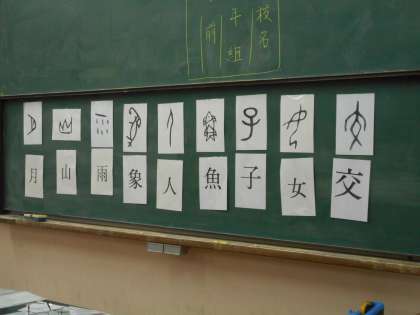 校名
斗組
前
月 山 雨 象 人 魚 子 女 交